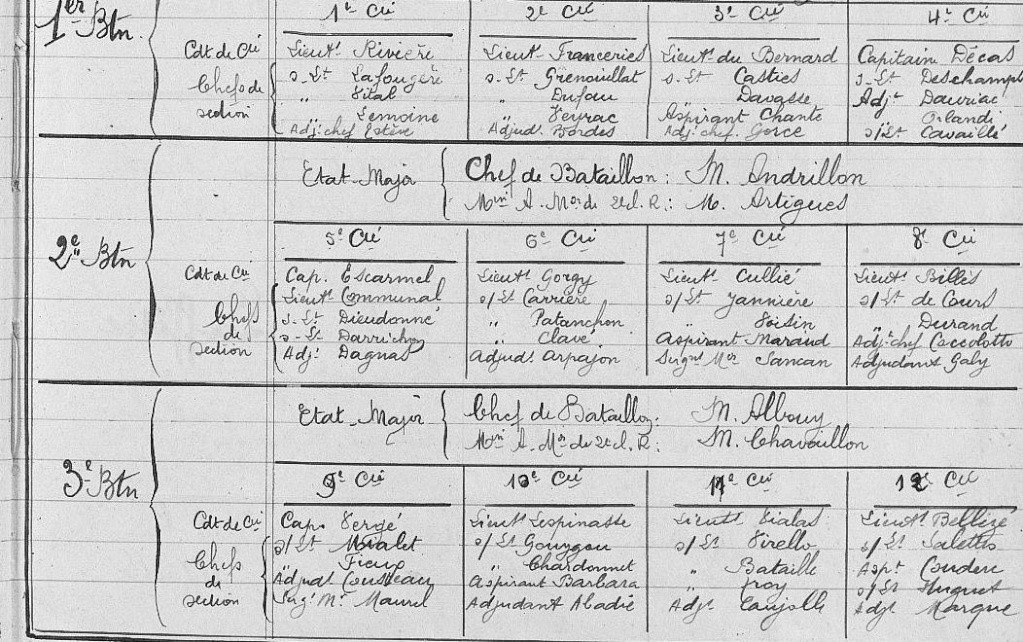 1er Btn.
1e Cie 2e Cie 3e Cie 4e Cie
Cdt de Cie Lieutt Rivière Lieutt Franceries Lieutt du Bernard Capitain Décas
Chefs de section s-Lt Lafougère s-Lt Grenouillat s-Lt Casties s-Lt Deschamps
" Vital " Dufau " Davasse Adjt Dauriac
" Lemoine " Veyrac Aspirant Chante " Orlandi
Adj: chef Estève Adjudt Bordes Adj: chef. Gorce s/Lt Cavaillé
2e Btn
Etat-Major Chef de Bataillon: M. Andrillon
Min A. Mor de 2e cl. R.: M. Artigues
5e Cie 6e Cie 7e Cie 8e Cie
Cdt de Cie Cap. Escarmel Lieutt Gorgy Lieutt Cullié Lieutt Billès
Chefs de section Lieutt Communal s/Lt Carrière s/Lt Jannière s/Lt de Cours
s-Lt Dieudonné " Patanchon " Voisin " Durand
s-Lt Darrichoy " Clavé Aspirant Maraud Adjt chef Ceccolotto
Adjt Dagnas Adjudt Arpajon Sergnt Mor Sancan Adjudant Galy
3e Btn
Etat-Major Chef de Bataillon: M. Albouy
Min A. Mor de 2e cl. R: M. Chavoillon
9e Cie 10e Cie 11e Cie 12e Cie
Cdt de Cie Cap. Vergé Lieutt Lespinasse Lieutt Vialas Lieutt
Chefs de section s/Lt Mialet s/Lt Gouygou s/Lt Virello s/Lt Salettes
" Fieux " Chardonnet " Bataille Aspt Couderc
Adjudt Cousteau Aspirant Barbara " Froy s/Lt Huguet
Sergt Mr Maurel Adjudant Abadie Adjt Caujolle Adjt Marque